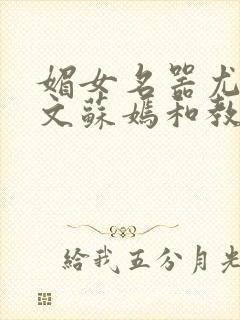 媚女名器尤
文蘇媽和教
給我五分月光